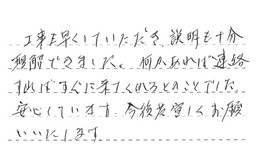 工事も早くしていただき、説明も十分
理解できました。何かあれば連絡
すればすぐに来てくれるとのことでした。
安心しています。今後共宜しくお願
いいたします